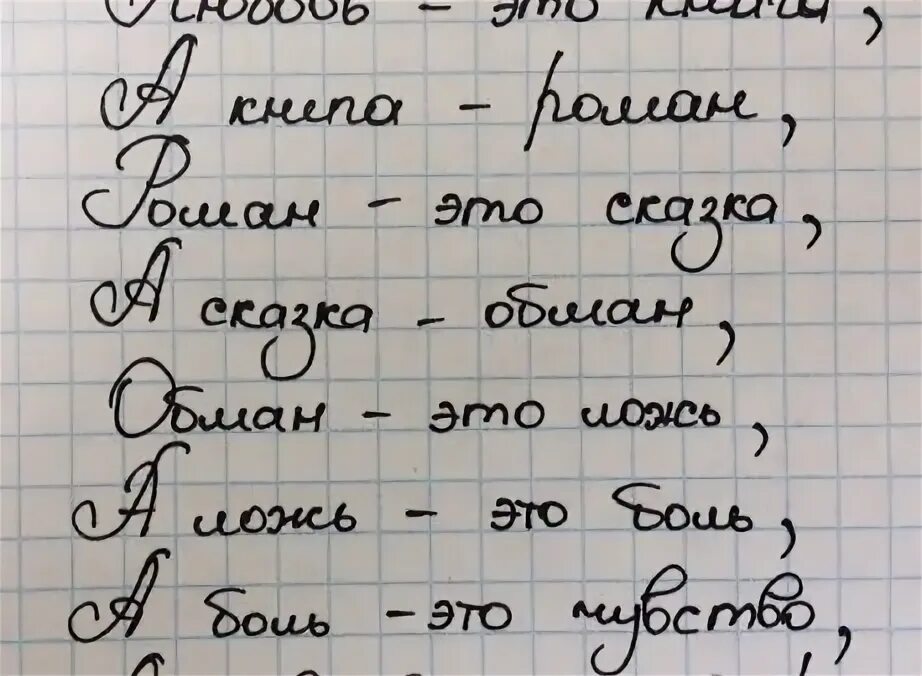 Любовь - это книга,
А книга - роман,
Роман - это сказка,
А сказка - обман,
Обман - это ложь,
А ложь - это боль,
А боль - это чувство,